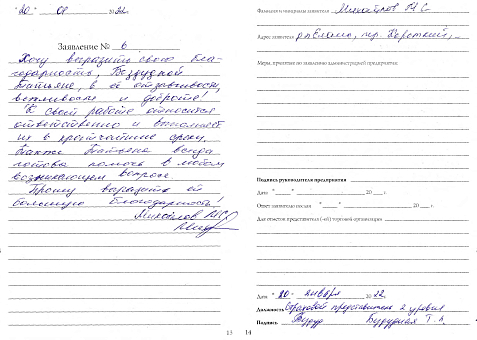 "20" 01 2022
Заявление № 6
Хочу выразить свою бла-
годарность, Бездудной
Татьяне, в её отзывчивости,
вежливости и доброте!
К своей работе относится
ответственно и выполняет
их в кротчайшие сроки.
Также Татьяна всегда
готова помочь в любом
возникающем вопросе.
Прошу выразить ей
большую благодарность!
Михайлов М.С.
13
Фамилия и инициалы заявителя Михайлов М С
Адрес заявителя пер. Короткий,
Меры, принятые по заявлению администрацией предприятия:
Подпись руководителя предприятия
Дата "___" ______ 20___ г.
Ответ заявителю послан "___" ______ 20___ г.
Для отметок представителя (-ей) торговой организации
Дата "20" января 2022
Должность Страховой представитель 2 уровня
Подпись
14